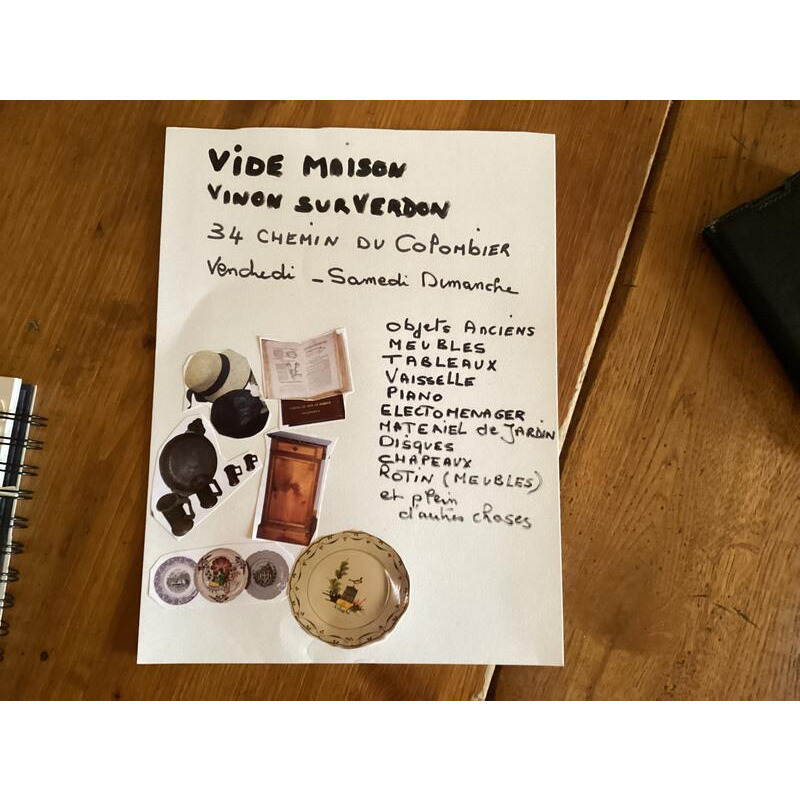 ViDE MAISON
VINON SUR VERDON
34 CHEMIN DU COLOMBIER
Vendredi - Samedi Dimanche
Objets Anciens
MEUBLES
TABLEAUX
VAISSELLE
PIANO
ELECTOMENAGER
MATERIEL de JARDIN
DISQUES
CHAPEAUX
ROTIN (MEUBLES)
et plein
d'autres choses